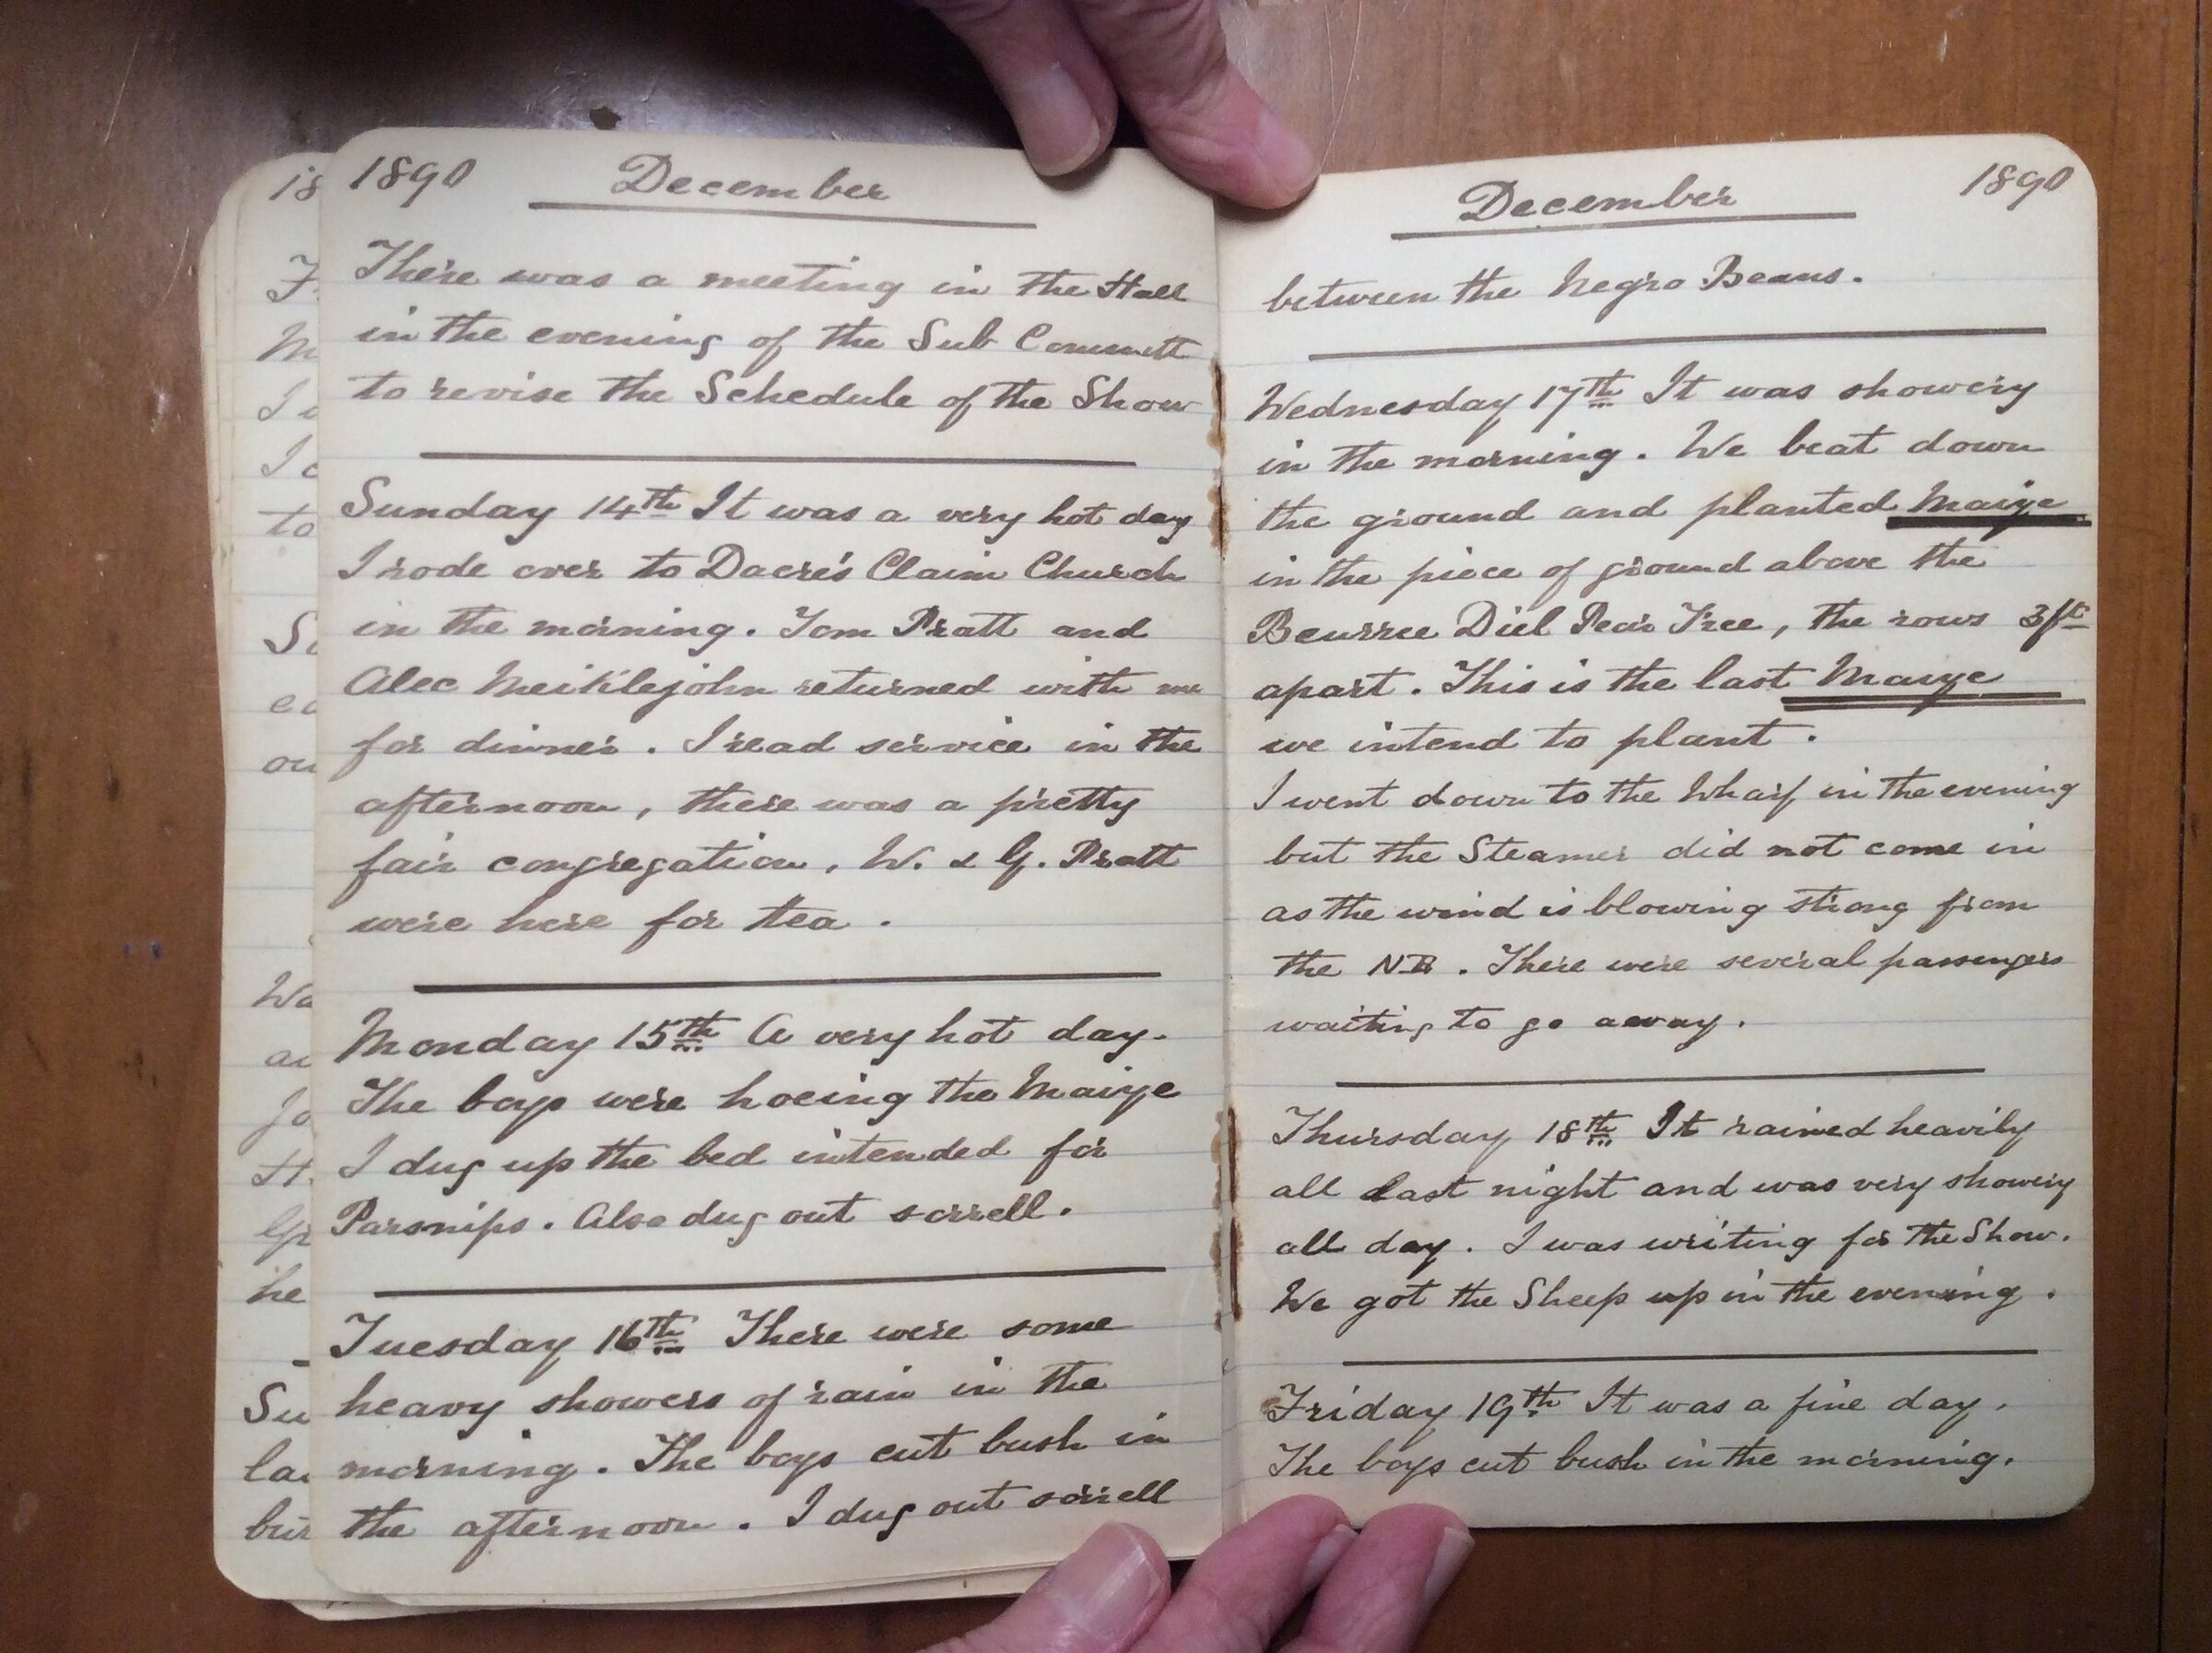 1890 December
There was a meeting in the Hall
in the evening of the Sub Committ
to revise the Schedule of the Show
Sunday 14th It was a very hot day
I rode over to Dacre's Claim Church
in the morning. Tom Pratt and
Alec Meiklejohn returned with me
for dinner. I read service in the
afternoon, there was a pretty
fair congregation. W. & G. Pratt
were here for tea.
Monday 15th A very hot day.
The boys were hoeing the Maize
I dug up the bed intended for
Parsnips. Also dug out sorrell.
Tuesday 16th There were some
heavy showers of rain in the
morning. The boys cut bush in
the afternoon. I dug out sorrell
December 1890
between the Negro Beans.
Wednesday 17th It was showery
in the morning. We beat down
the ground and planted Maize
in the piece of ground above the
Beurree Diel Pear Tree, the rows 3ft
apart. This is the last Maize
we intend to plant.
I went down to the Wharf in the evening
but the Steamer did not come in
as the wind is blowing strong from
the N.E. There were several passengers
waiting to go away.
Thursday 18th It rained heavily
all last night and was very showery
all day. I was writing for the Show.
We got the Sheep up in the evening.
Friday 19th It was a fine day.
The boys cut bush in the morning.